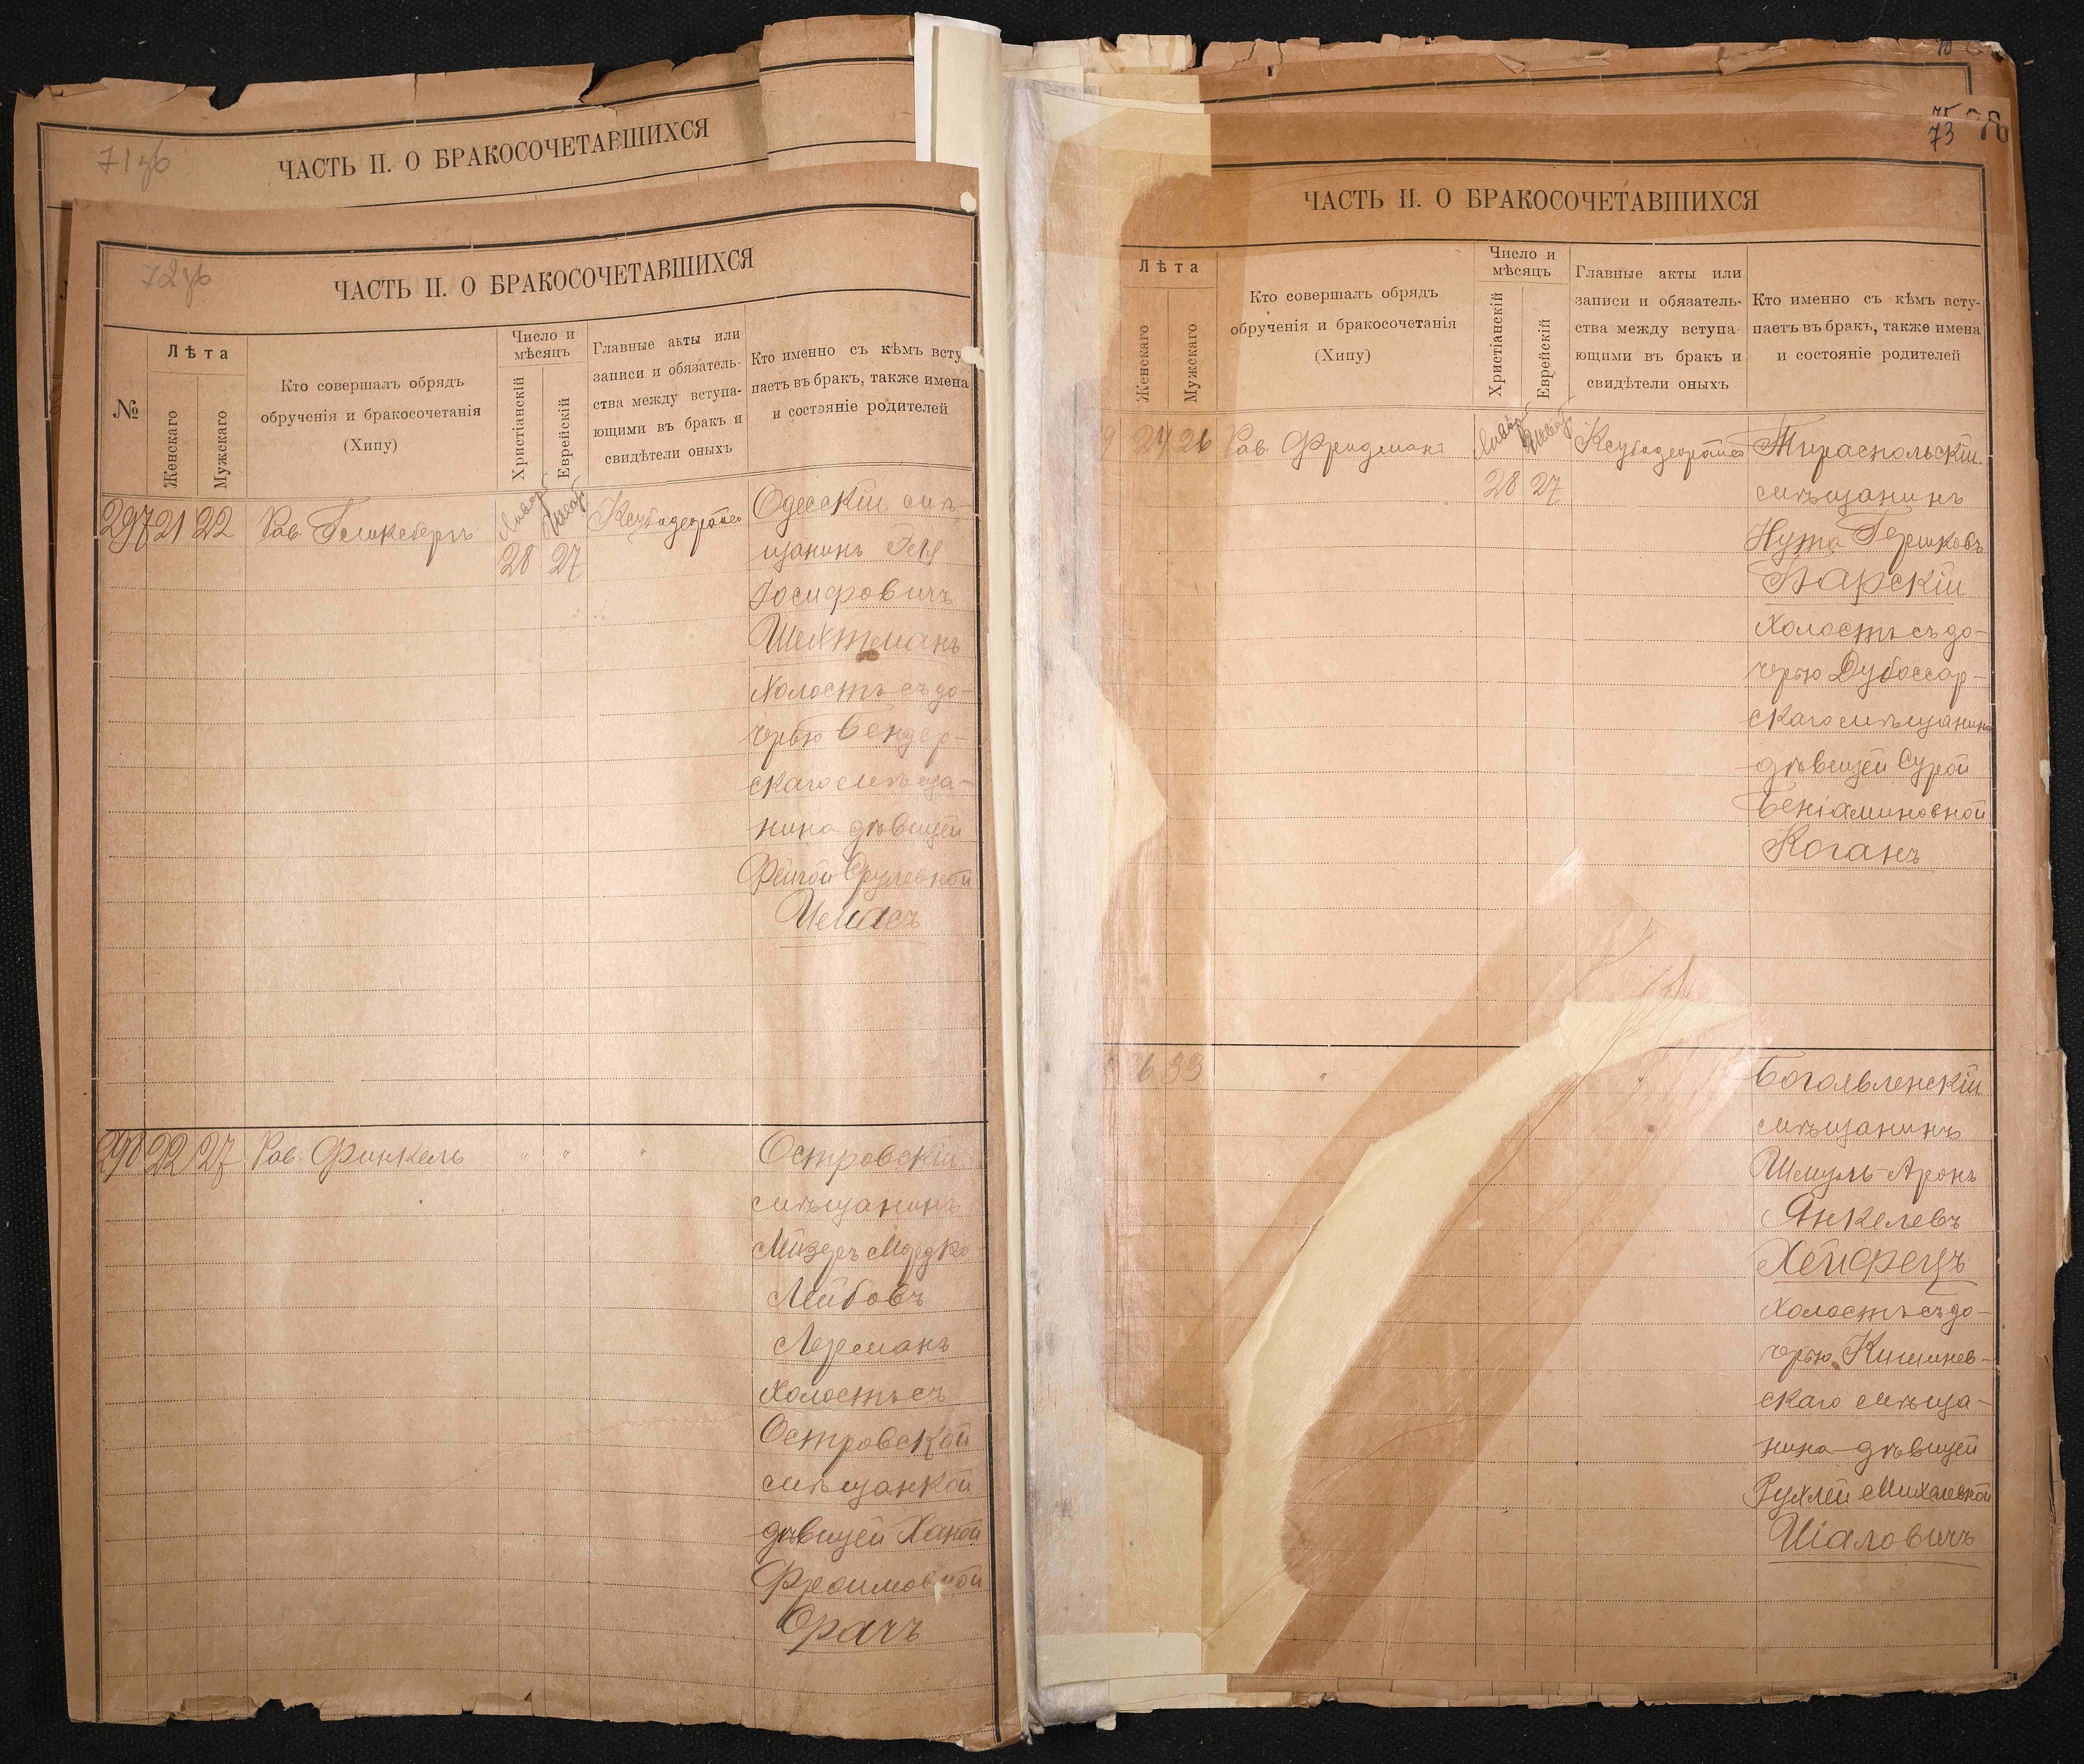 71 об
ЧАСТЬ II. О БРАКОСОЧЕТАВШИХСЯ
72 об
ЧАСТЬ II. О БРАКОСОЧЕТАВШИХСЯ
№
Лѣта
Женскаго
Мужскаго
Кто совершалъ обрядъ
обрученія и бракосочетанія
(Хипу)
Число и
мѣсяцъ
Христіанскій
Еврейскій
Главные акты или
записи и обязатель-
ства между вступа-
ющими въ бракъ и
свидѣтели оныхъ
Кто именно съ кѣмъ всту-
паетъ въ бракъ, также имена
и состояніе родителей
297 21 22
Рав.
28 27
Одесскій мѣ-
щанинъ
Іосифовичъ
Шехтманъ
Холостъ съ до-
черью Бендер-
скаго мѣща-
нина дѣвицей
Фейгой Срулевной
298 22 27 Рав. Финкель " " "
Островскій
мѣщанинъ
Лейзеръ Мордко
Лейбовъ
Лерманъ
Холостъ съ
Островской
мѣщанкой
дѣвицей Ханой
Фроимовной
Орачъ
75
73
ЧАСТЬ II. О БРАКОСОЧЕТАВШИХСЯ
Лѣта
Женскаго
Мужскаго
Кто совершалъ обрядъ
обрученія и бракосочетанія
(Хипу)
Число и
мѣсяцъ
Христіанскій
Еврейскій
Главные акты или
записи и обязатель-
ства между вступа-
ющими въ бракъ и
свидѣтели оныхъ
Кто именно съ кѣмъ всту-
паетъ въ бракъ, также имена
и состояніе родителей
9 24 26 Рав. Фридманъ
28 27
Тираспольскій
мѣщанинъ
Нута Гершковъ
Барскій
Холостъ съ до-
черью Дубоссар-
скаго мѣщанина
дѣвицей Сурой
Беніаминовной
Коганъ
6 33 " "
Богоявленскій
мѣщанинъ
Шмуль-Аронъ
Янкелевъ
Хейфецъ
Холостъ съ до-
черью Кишинев-
скаго мѣща-
нина дѣвицей
Рухлей Михелевной
Шаловичъ